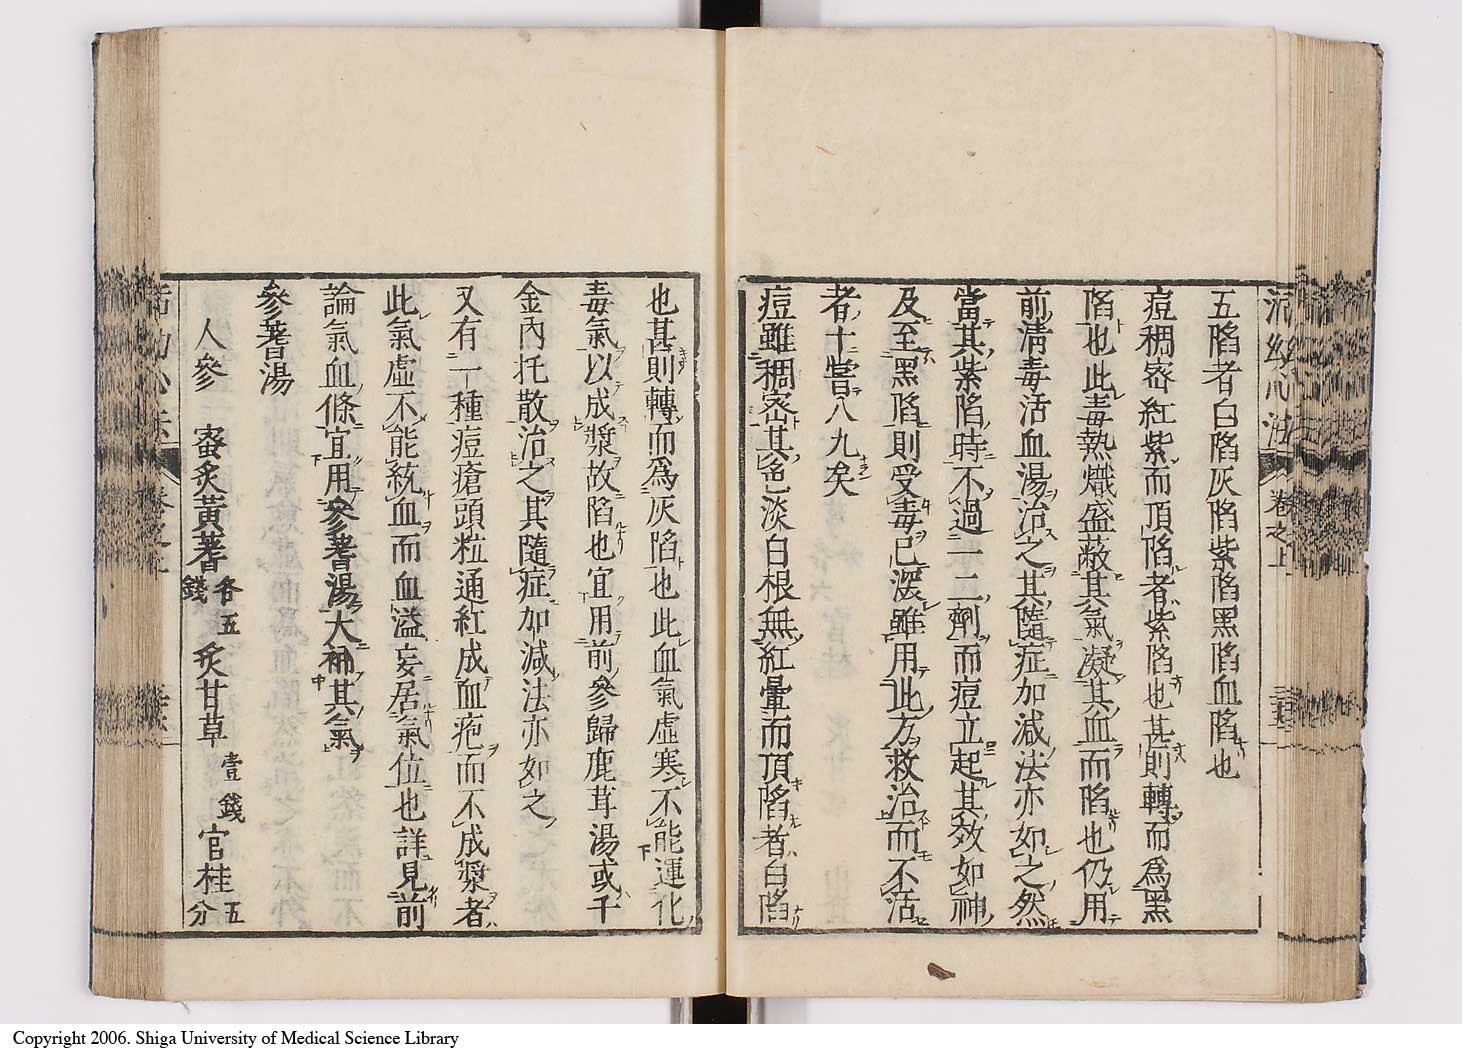 五陷者白陷灰陷紫陷黑陷血陷也
痘稠宻紅紫而頂陷者紫陷也甚則轉而爲黑
陷也此毒熱熾盛蔽其氣凝其血而陷也仍用
前淸毒活血湯治之其隨症加减法亦如之然
當其紫陷時不過一二劑而痘立起其效如神
及至黑陷則受毒已深雖用此方救治而不活
者十嘗八九矣
痘雖稠宻其色淡白根無紅暈而頂陷者白陷
也甚則轉而爲灰陷也此血氣虛寒不能運化
毒氣以成漿故陷也宜用前參歸鹿茸湯或千
金內托散治之其隨症加减法亦如之
又有一種痘瘡頭粒通紅成血疱而不成漿者
此氣虛不能統血而血溢妄居氣位也詳見前
論氣血條宜用參蓍湯大補其氣
參蓍湯
人參 宻炙黃蓍各五錢 炙甘草壹錢 官桂五分
卷之上
Copyright 2006. Shiga University of Medical Science Library